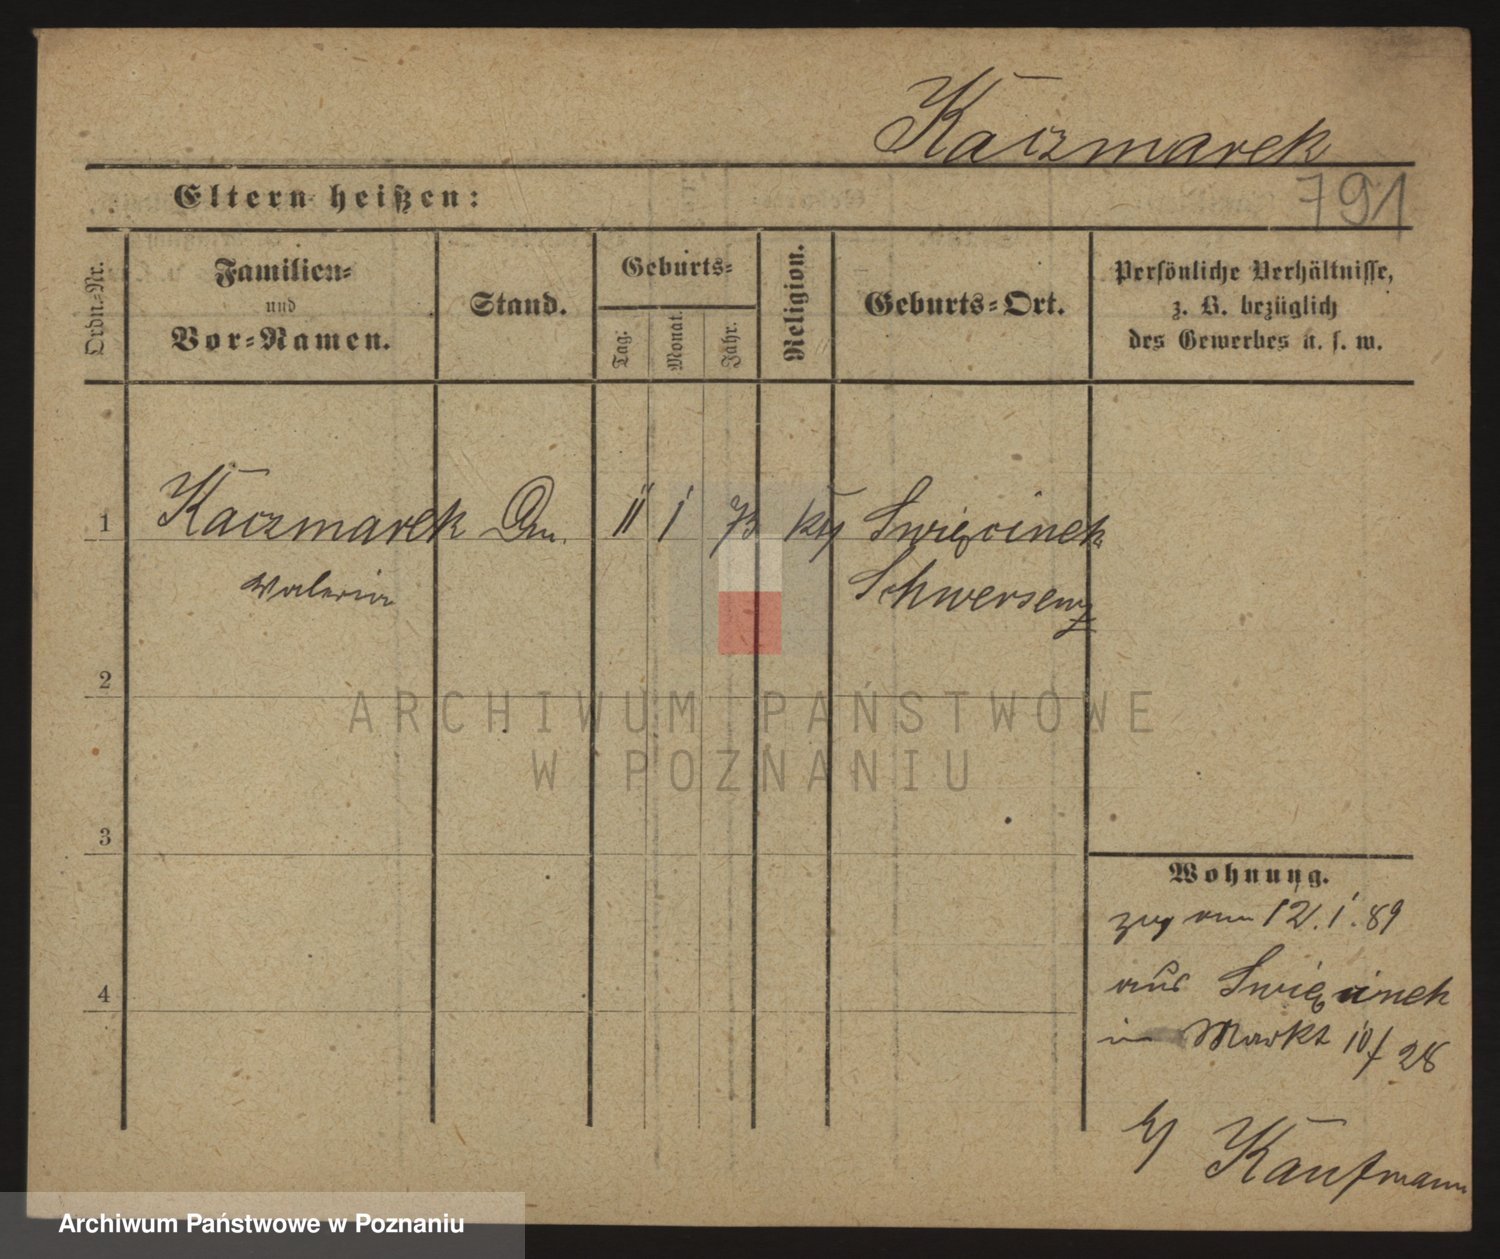 Kaczmarek
Eltern heißen:
791
Ordn=Nr.
Familien=
und
Vor=Namen.
Stand.
Geburts=
Tag:
Monat.
Jahr.
Religion.
Geburts=Ort.
Persönliche Verhältnisse,
z. B. bezüglich
des Gewerbes u. s. w.
1 Kaczmarek 11 1 73 Święcinek
Valeria Schwersenz
2
ARCHIWUM PAŃSTWOWE
W POZNANIU
3
Wohnung.
zug 12.1.89
4
aus Święcinek
Markt 10/28
b/ Kaufmann
Archiwum Państwowe w Poznaniu